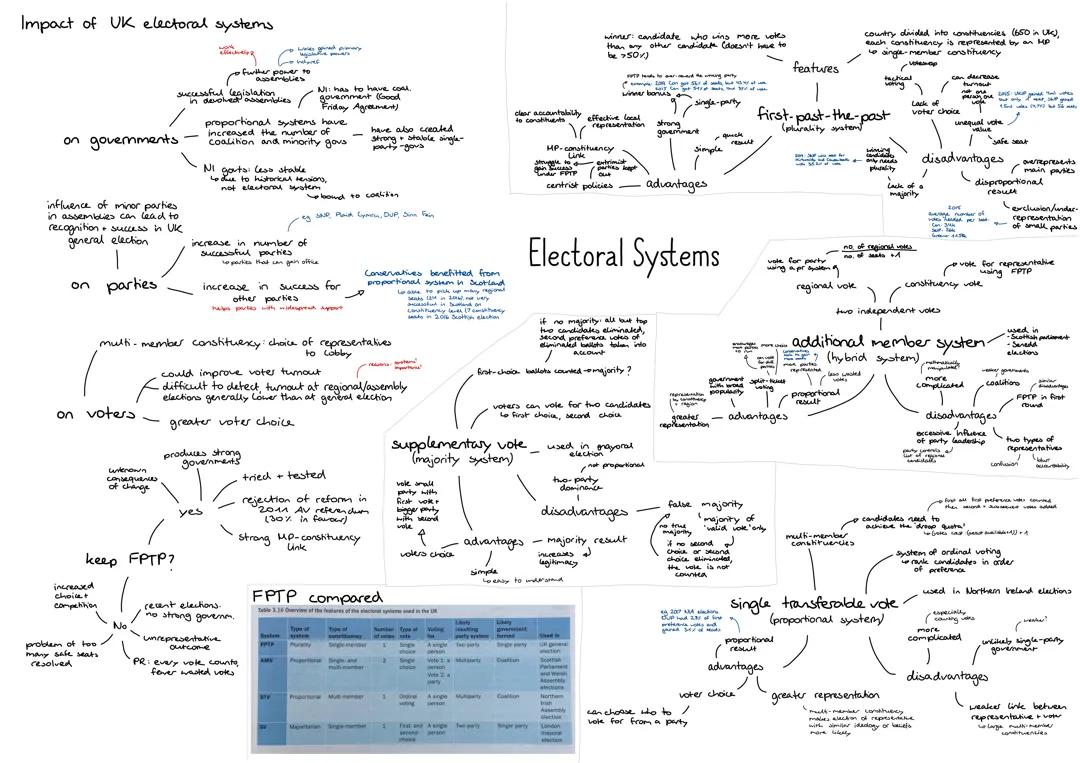 Impact of UK electoral systems
work
effectively?
Wales gained primary
legislative powers
further power to
assemblies
successful legislation
in devolved assemblies
NI: has to have coal.
government (Good
Friday Agreement)
on governments
proportional systems have
increased the number of
coalition and minority govs
have also created
strong + stable single-
party-govs
NI govts: less stable
due to historical tension,
not electoral system
bound to coalition
influence of minor parties
in assemblies can lead to
recognition + success in UK
general election
eg SNP, Plaid Cymru, DUP, Sinn Fein
increase in number of
successful parties
parties that can gain office
on parties
increase in success for
other parties
helps parties with widespread support
Conservatives benefitted from
proportional system in Scotland
able to pick up many regional
seats (24 in 2016), not very
successful in Scotland on
constituency level (7 constituency
seats in 2016 Scottish election
multi-member constituency: choice of representatives
to lobby
could improve voter turnout
reasons: systems?
importance?
difficult to detect, turnout at regional/assembly
elections generally lower than at general election
on voters
greater voter choice
produces strong
governments
unknown
consequences
of change
tried + tested
yes
rejection of reform in
2011 AV referendum
(30% in favour)
strong MP-constituency
link
keep FPTP?
increased
choice +
competition
No
recent elections:
no strong governm.
unrepresentative
outcome
problem of too
many safe seats
resolved
PR: every vote counts,
fewer wasted votes
Electoral Systems
winner: candidate who wins more votes
than any other candidate (doesn't have to
be >50%)
country divided into constituencies (650 in UK),
each constituency is represented by an MP
single-member constituency
features
FPTP tends to over-reward the winning party
winner bonus
single-party
clear accountability
to constituents
effective local
representation
strong
government
quick
result
first-past-the-post
(plurality system)
MP-constituency
link
simple
struggle to
gain success
under FPTP
extremist
parties kept
out
centrist policies
advantages
voteswap
tactical
voting
can decrease
turnout
not one
person, one
vote
lack of
voter choice
unequal vote
value
safe seat
winning
candidate
only needs
plurality
disadvantages
overrepresents
main parties
lack of a
majority
disproportional
result
exclusion/under-
representation
of small parties
2015
average number of
votes needed per seat:
no. of regional votes
no. of seats +1
vote for party
using a pr system
vote for representative
using FPTP
regional vote
constituency vote
two independent votes
additional member system
(hybrid system)
used in
- Scottish parliament
- Senedd
elections
more choice
more parties
represented
less wasted
votes
government
with broad
popularity
split-ticket
voting
proportional
result
representation
by constituency
+ region
greater
representation
advantages
more
complicated
weaker governments
coalitions
similar
disadvantages
FPTP in first
round
disadvantages
excessive influence
of party leadership
party controls
list of regional
candidates
two types of
representatives
confusion
blur
accountability
if no majority: all but top
two candidates eliminated,
second preference votes of
eliminated ballots taken into
account
first-choice ballots counted → majority?
voters can vote for two candidates
first choice, second choice
supplementary vote
(majority system)
used in mayoral
election
not proportional
two-party
dominance
vote small
party with
first vote +
bigger party
with second
vote
disadvantages
false majority
no true
majority
majority of
'valid vote' only
if no second
choice or second
choice eliminated,
the vote is not
counted
voters choice
advantages
majority result
increases
legitimacy
simple
easy to understand
first all first preference votes counted
then second + subsequent votes added
candidates need to
achieve the 'droop quota'
multi-member
constituencies
system of ordinal voting
rank candidates in order
of preference
single transferable vote
(proportional system)
used in Northern Ireland elections
eg 2017 NIA elections
DUP had 28% of first
preference votes and
gained 31% of seats
proportional
result
especially
counting votes
more
complicated
weaker?
unlikely single-party
government
advantages
disadvantages
voter choice
greater representation
can choose who to
vote for from a party
multi-member constituency
makes election of representative
with similar ideology or beliefs
more likely
weaker link between
representative + voter
large multi-member
constituencies
FPTP compared
Table 3.10 Overview of the features of the electoral systems used in the UK
System Type of system Type of constituency Number of votes Type of vote Voting for Likely resulting party system Likely government formed Used in
FPTP Plurality Single-member 1 Single choice A single person Two party Single party UK general election
AMS Proportional Single- and multi-member 2 Single choice Vote 1: a person Vote 2: a party Multiparty Coalition Scottish Parliament and Welsh Assembly elections
STV Proportional Multi-member 1 Ordinal voting A single person Multiparty Coalition Northern Irish Assembly election
SV Majoritarian Single-member 1 First- and second-choice A single person Two party Single party London mayoral election